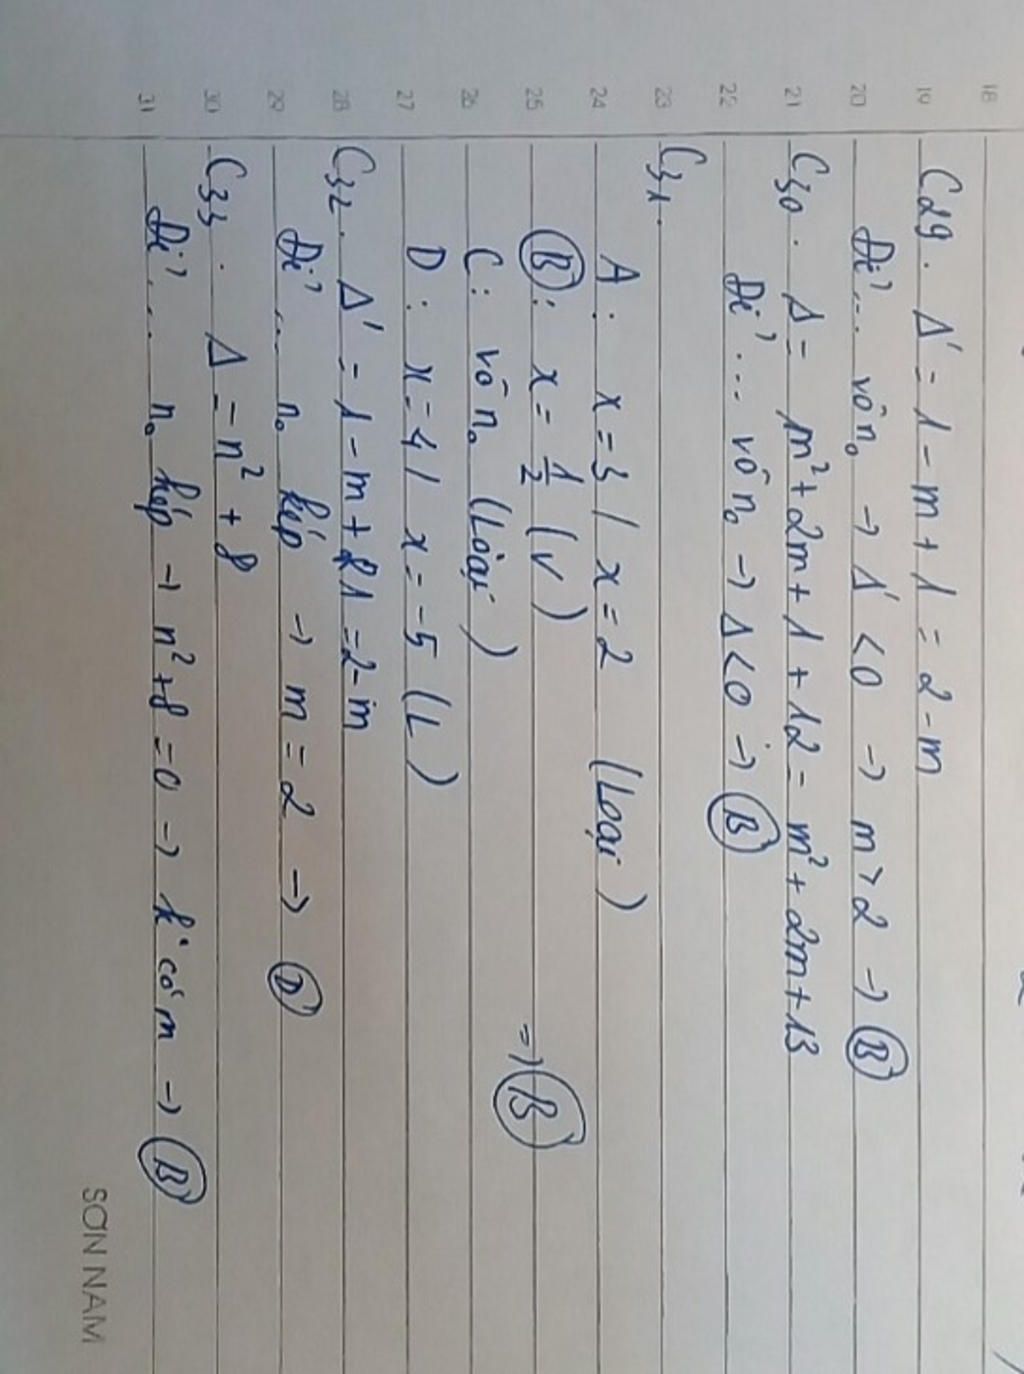 18
19 C29. Δ' = 1 - m + 1 = 2 - m
20 Để... vô n₀ → Δ' < 0 → m > 2 → B
21 C30. Δ = m² + 2m + 1 + 12 = m² + 2m + 13
22 Để... vô n₀ → Δ < 0 → B
23 C31.
24 A: x = 3 / x = 2 (Loại)
25 B: x = 1/2 (v) => B
26 C: vô n₀ (Loại)
27 D: x = 4 / x = -5 (L)
28 C32. Δ' = 1 - m + 1 = 2 - m
29 Để... n₀ kép → m = 2 → D
30 C33. Δ = n² + 8
31 Để... n₀ kép → n² + 8 = 0 → k có m → B
SƠN NAM